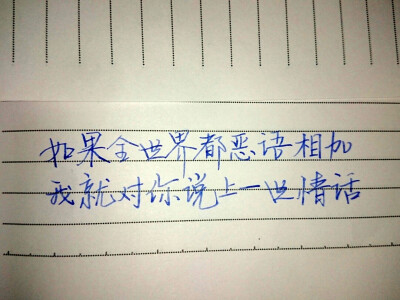 如果全世界都恶语相加
我就对你说上一世情话